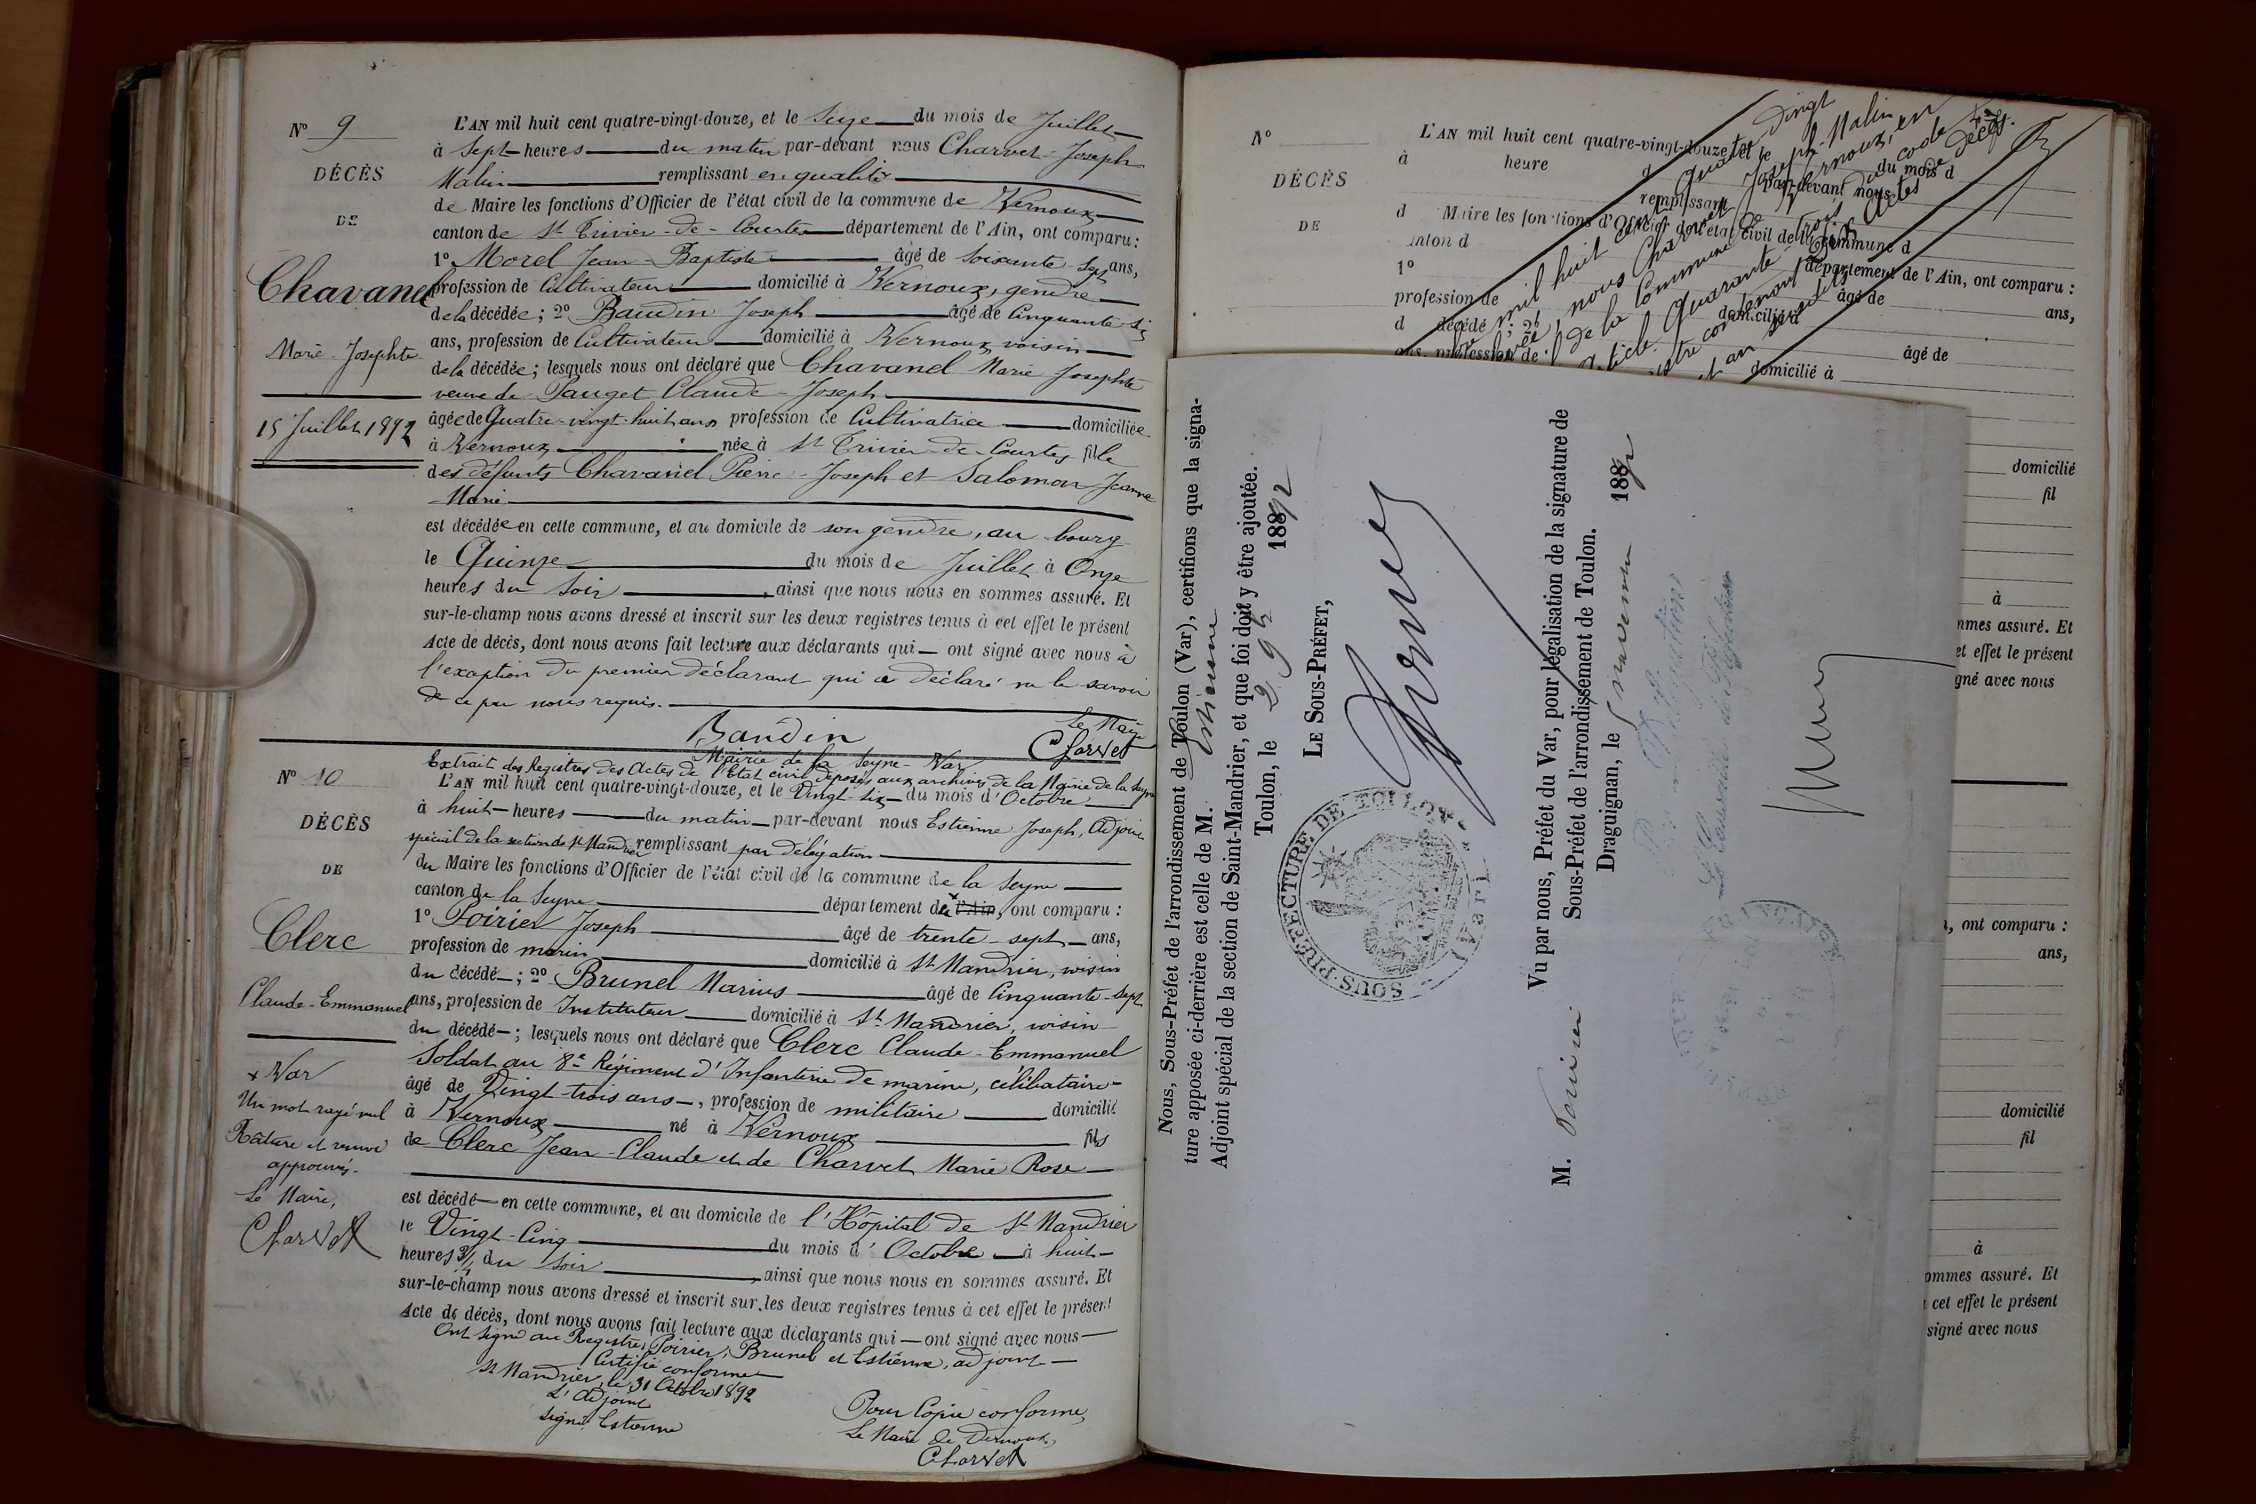 N° 9
DÉCÈS
DE
Chavanel
Marie Josephte
15 Juillet 1892
L'AN mil huit cent quatre-vingt-douze, et le Seize du mois de Juillet
à Sept heures du matin par-devant nous Charvet Joseph
Malin remplissant en qualité
de Maire les fonctions d'Officier de l'état civil de la commune de Vernoux
canton de St Trivier-de-Courtes département de l'Ain, ont comparu :
1° Morel Jean-Baptiste âgé de soixante ans,
profession de Cultivateur domicilié à Vernoux, gendre
de la décédée ; 2° Baudin Joseph âgé de Cinquante six
ans, profession de Cultivateur domicilié à Vernoux voisin
de la décédée ; lesquels nous ont déclaré que Chavanel Marie Josephte
veuve de Pauget Claude-Joseph
âgée de Quatre-vingt-huit ans profession de Cultivatrice domiciliée
à Vernoux née à St Trivier-de-Courtes fille
des défunts Chavanel Pierre-Joseph et Salomon Jeanne
Marie
est décédée en cette commune, et au domicile de son gendre, au bourg
le Quinze du mois de Juillet à Onze
heures du Soir, ainsi que nous nous en sommes assuré. Et
sur-le-champ nous avons dressé et inscrit sur les deux registres tenus à cet effet le présent
Acte de décès, dont nous avons fait lecture aux déclarants qui ont signé avec nous à
l'exception du premier déclarant qui a déclaré ne le savoir
de ce par nous requis.
Baudin
Le Maire
Charvet
N° 10
DÉCÈS
DE
Clerc
Claude-Emmanuel
+ Var
Un mot rayé nul
Râture et renvoi
approuvés.
Le Maire,
Charvet
Mairie de la Seyne - Var
Extrait des Registres des Actes de l'Etat civil déposés aux archives de la Mairie de la Seyne
L'AN mil huit cent quatre-vingt-douze, et le Vingt-six du mois d'Octobre
à huit heures du matin par-devant nous Estienne Joseph, Adjoint
spécial de la section de St Mandrier remplissant par délégation
du Maire les fonctions d'Officier de l'état civil de la commune de la Seyne
canton de la Seyne département de l'Ain, ont comparu :
1° Poirier Joseph âgé de trente-sept ans,
profession de marin domicilié à St Mandrier, voisin
du décédé ; 2° Brunel Marius âgé de Cinquante-sept
ans, profession de Instituteur domicilié à St Mandrier, voisin
du décédé ; lesquels nous ont déclaré que Clerc Claude-Emmanuel
Soldat au 8e Régiment d'Infanterie de marine, célibataire
âgé de Vingt-trois ans, profession de militaire domicilié
à Vernoux né à Vernoux fils
de Clerc Jean-Claude et de Charvet Marie Rose
est décédé en cette commune, et au domicile de l'Hôpital de St Mandrier
le Vingt-Cinq du mois d'Octobre à huit
heures 3/4 du soir, ainsi que nous nous en sommes assuré. Et
sur-le-champ nous avons dressé et inscrit sur les deux registres tenus à cet effet le présent
Acte de décès, dont nous avons fait lecture aux déclarants qui ont signé avec nous
Ont signé au Registre, Poirier, Brunel et Estienne, adjoint
Certifié conforme
St Mandrier, le 31 Octobre 1892
L'Adjoint
Signé Estienne
Pour Copie conforme,
Le Maire de Vernoux,
Charvet
N°
DÉCÈS
DE
L'AN mil huit cent quatre-vingt-douze, et le
à heure du mois d
par-devant nous
remplissant
d Maire les fonctions d'Officier de l'état civil de la commune d
anton d département de l'Ain, ont comparu :
1° âgé de ans,
profession de domicilié à
d décédé ; 2° âgé de
ans, profession de domicilié à
mil huit cent quatre vingt
nous Charvet Joseph-Malin
de la Commune de Vernoux, en
article quarante trois du code
Nous, Sous-Préfet de l'arrondissement de Toulon (Var), certifions que la signa-
ture apposée ci-derrière est celle de M. Estienne
Adjoint spécial de la section de Saint-Mandrier, et que foi doit y être ajoutée.
Toulon, le 2 9bre 1892
LE SOUS-PRÉFET,
SOUS-PRÉFECTURE DE TOULON
(Var)
Vu par nous, Préfet du Var, pour légalisation de la signature de
M. Sous-Préfet de l'arrondissement de Toulon.
Draguignan, le 5 novembre 1892
domicilié
fil
à
mmes assuré. Et
et effet le présent
gné avec nous
, ont comparu :
ans,
domicilié
fil
à
ommes assuré. Et
cet effet le présent
signé avec nous